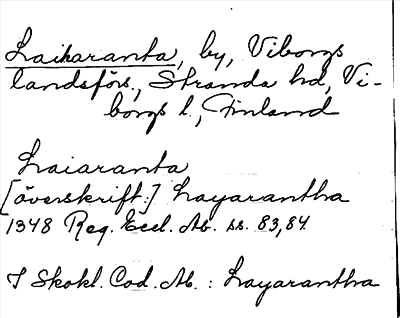 Laikaranta, by, Viborgs
landsförs., Stranda hd, Vi-
borgs l., Finland
Laiaranta
[överskrift:] Layarantha
1348 Reg. Eccl. Ab. ss. 83, 84.
I Skokl. Cod. Ab. : Layarantha